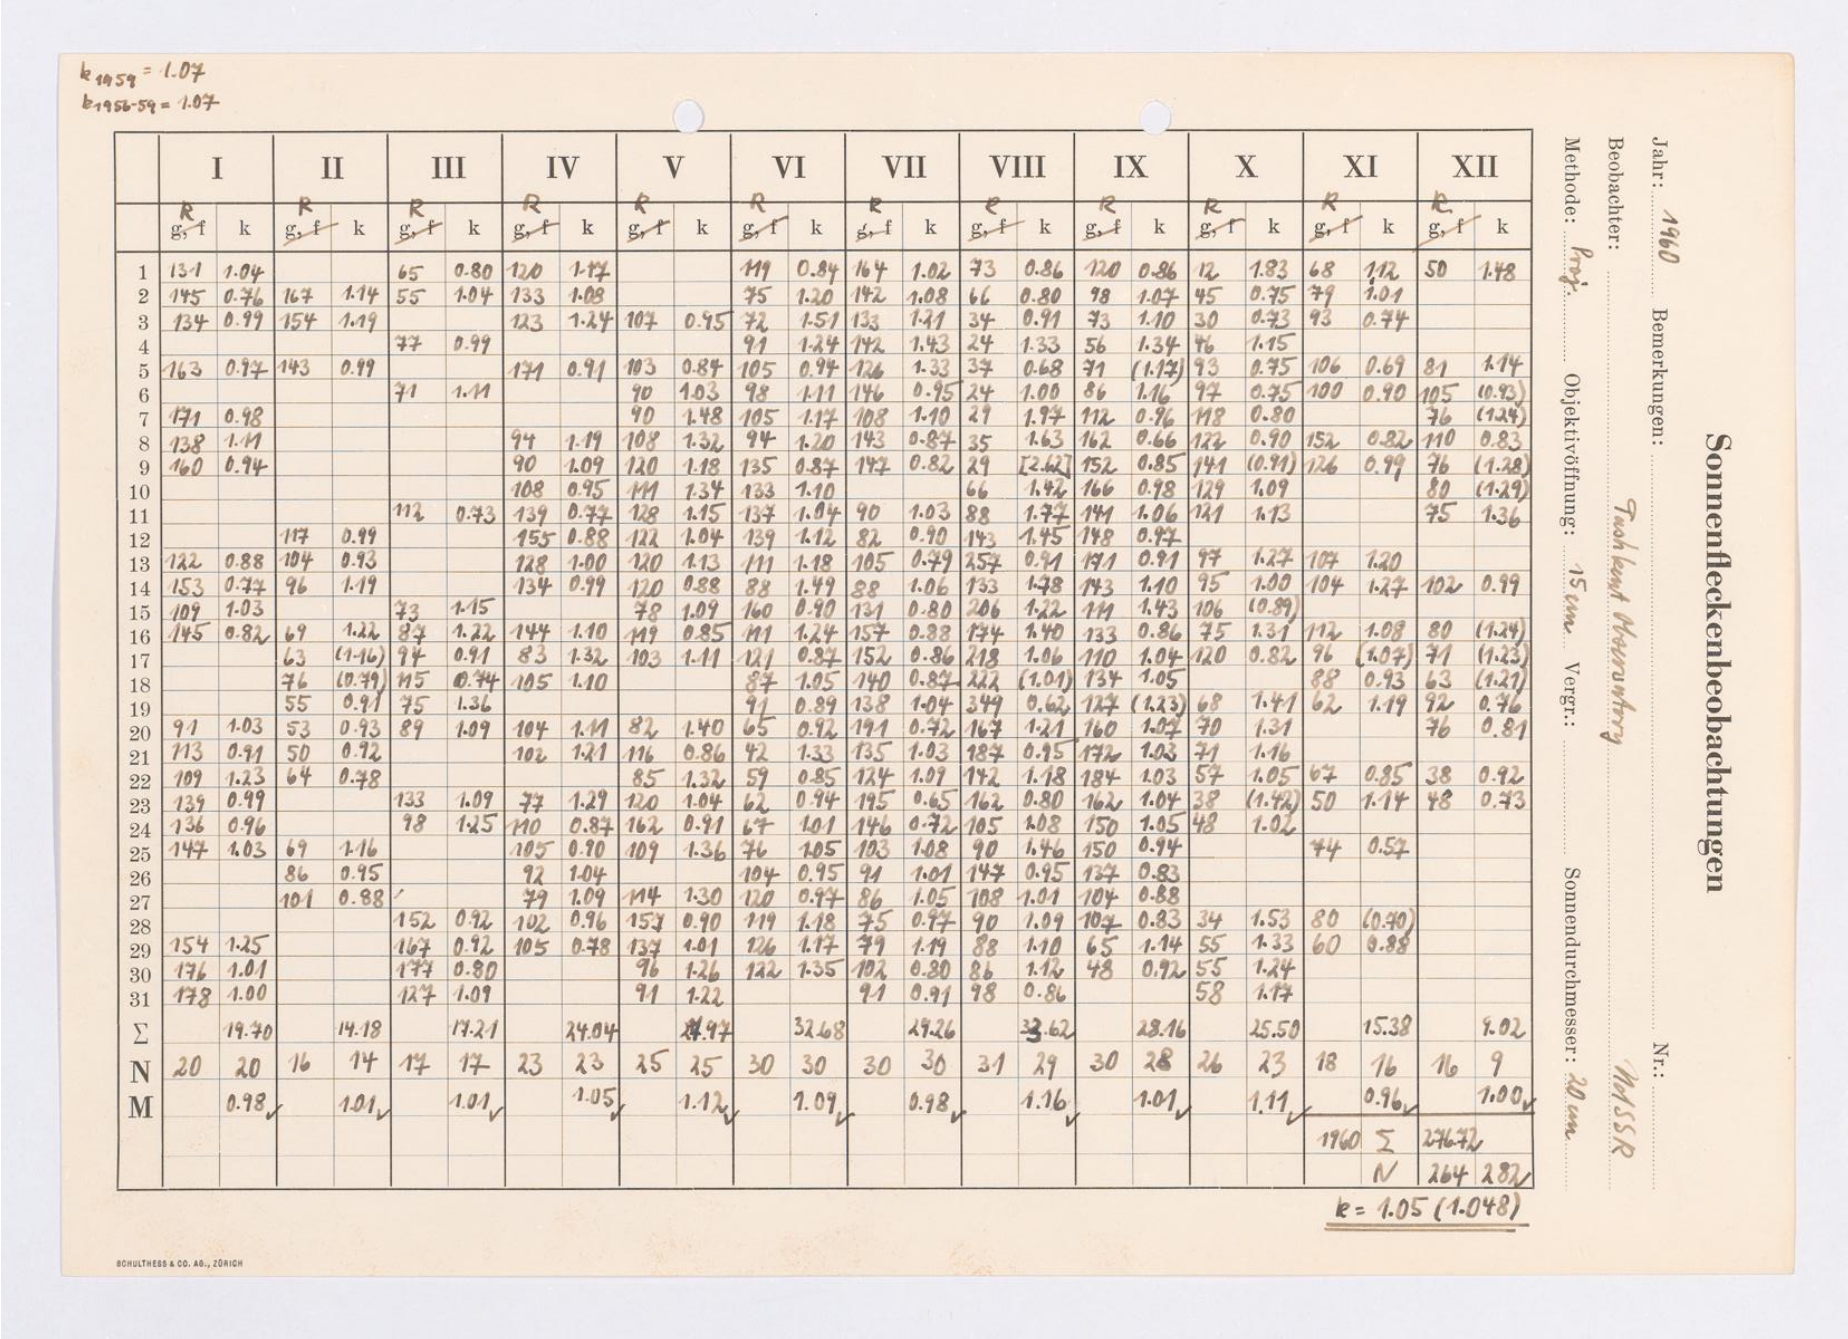 k1959 = 1.07
k1956-59 = 1.07
I II III IV V VI VII VIII IX X XI XII
R R R R R R R R R R R R
g, f k g, f k g, f k g, f k g, f k g, f k g, f k g, f k g, f k g, f k g, f k g, f k
1 131 1.04 65 0.80 120 1.17 119 0.84 164 1.02 73 0.86 120 0.86 12 1.83 68 1.12 50 1.48
2 145 0.76 167 1.14 55 1.04 133 1.08 75 1.20 142 1.08 66 0.80 98 1.07 45 0.75 79 1.01
3 134 0.99 154 1.19 123 1.24 107 0.95 72 1.51 133 1.21 34 0.91 73 1.10 30 0.73 93 0.74
4 77 0.99 91 1.24 142 1.43 24 1.33 56 1.34 46 1.15
5 163 0.97 143 0.99 171 0.91 103 0.84 105 0.94 126 1.33 37 0.68 71 (1.17) 93 0.75 106 0.69 81 1.14
6 71 1.11 90 1.03 98 1.11 146 0.95 24 1.00 86 1.16 97 0.75 100 0.90 105 (0.93)
7 171 0.98 90 1.48 105 1.17 108 1.10 29 1.97 112 0.96 118 0.80 76 (1.24)
8 138 1.11 94 1.19 108 1.32 94 1.20 143 0.87 35 1.63 162 0.66 122 0.90 152 0.82 110 0.83
9 160 0.94 90 1.09 120 1.18 135 0.87 147 0.82 29 [2.62] 152 0.85 141 (0.91) 126 0.99 76 (1.28)
10 108 0.95 111 1.34 133 1.10 66 1.42 166 0.98 129 1.09 80 (1.29)
11 112 0.73 139 0.77 128 1.15 137 1.04 90 1.03 88 1.77 141 1.06 121 1.13 75 1.36
12 117 0.99 155 0.88 122 1.04 139 1.12 82 0.90 143 1.45 148 0.97
13 122 0.88 104 0.93 128 1.00 120 1.13 111 1.18 105 0.79 257 0.91 171 0.91 97 1.27 107 1.20
14 153 0.77 96 1.19 134 0.99 120 0.88 88 1.49 88 1.06 133 1.78 143 1.10 95 1.00 104 1.27 102 0.99
15 109 1.03 73 1.15 78 1.09 160 0.90 131 0.80 206 1.22 111 1.43 106 (0.89)
16 145 0.82 69 1.22 87 1.22 144 1.10 119 0.85 111 1.24 157 0.88 174 1.40 133 0.86 75 1.31 112 1.08 80 (1.24)
17 63 (1.16) 94 0.91 83 1.32 103 1.11 121 0.87 152 0.86 218 1.06 110 1.04 120 0.82 96 [1.07) 71 (1.23)
18 76 (0.79) 115 0.74 105 1.10 87 1.05 140 0.87 222 (1.01) 134 1.05 88 0.93 63 (1.21)
19 55 0.91 75 1.36 91 0.89 138 1.04 349 0.62 127 (1.23) 68 1.41 62 1.19 92 0.76
20 91 1.03 53 0.93 89 1.09 104 1.11 82 1.40 65 0.92 191 0.72 167 1.21 160 1.07 70 1.31 76 0.81
21 113 0.91 50 0.92 102 1.21 116 0.86 42 1.33 135 1.03 187 0.95 172 1.03 71 1.16
22 109 1.23 64 0.78 85 1.32 59 0.85 124 1.09 142 1.18 184 1.03 57 1.05 67 0.85 38 0.92
23 139 0.99 133 1.09 77 1.29 120 1.04 62 0.94 195 0.65 162 0.80 162 1.04 38 (1.42) 50 1.14 48 0.73
24 136 0.96 98 1.25 110 0.87 162 0.91 67 1.01 146 0.72 105 1.08 150 1.05 48 1.02
25 147 1.03 69 1.16 105 0.90 109 1.36 76 1.05 103 1.08 90 1.46 150 0.94 74 0.57
26 86 0.95 92 1.04 104 0.95 91 1.01 147 0.95 137 0.83
27 101 0.88 79 1.09 114 1.30 120 0.97 86 1.05 108 1.01 104 0.88
28 152 0.92 102 0.96 157 0.90 119 1.18 75 0.97 90 1.09 107 0.83 34 1.53 80 (0.70)
29 154 1.25 167 0.92 105 0.78 137 1.01 126 1.17 79 1.19 88 1.10 65 1.14 55 1.33 60 0.88
30 176 1.01 177 0.80 96 1.26 122 1.35 102 0.80 86 1.12 48 0.92 55 1.24
31 178 1.00 127 1.09 91 1.22 91 0.91 98 0.86 58 1.17
Σ 19.70 14.18 17.21 24.04 27.97 32.68 29.26 33.62 28.16 25.50 15.38 9.02
N 20 20 16 14 17 17 23 23 25 25 30 30 30 30 31 29 30 28 26 23 18 16 16 9
M 0.98✓ 1.01✓ 1.01✓ 1.05✓ 1.12✓ 1.09✓ 0.98✓ 1.16✓ 1.01✓ 1.11✓ 0.96✓ 1.00✓
1960 Σ 276.72
N 264 282
k = 1.05 (1.048)
SCHULTHESS & CO. AG., ZÜRICH
Sonnenfleckenbeobachtungen
Jahr: 1960 Bemerkungen: Nr.:
Beobachter: Tashkent Observatory UdSSR
Methode: Proj. Objektivöffnung: 15 cm Vergr.: Sonnendurchmesser: 20 cm